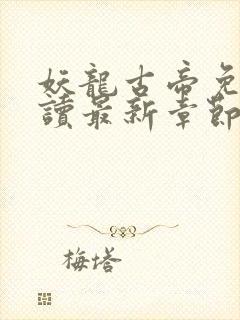 妖龍古帝免
讀最新章節
梅塔